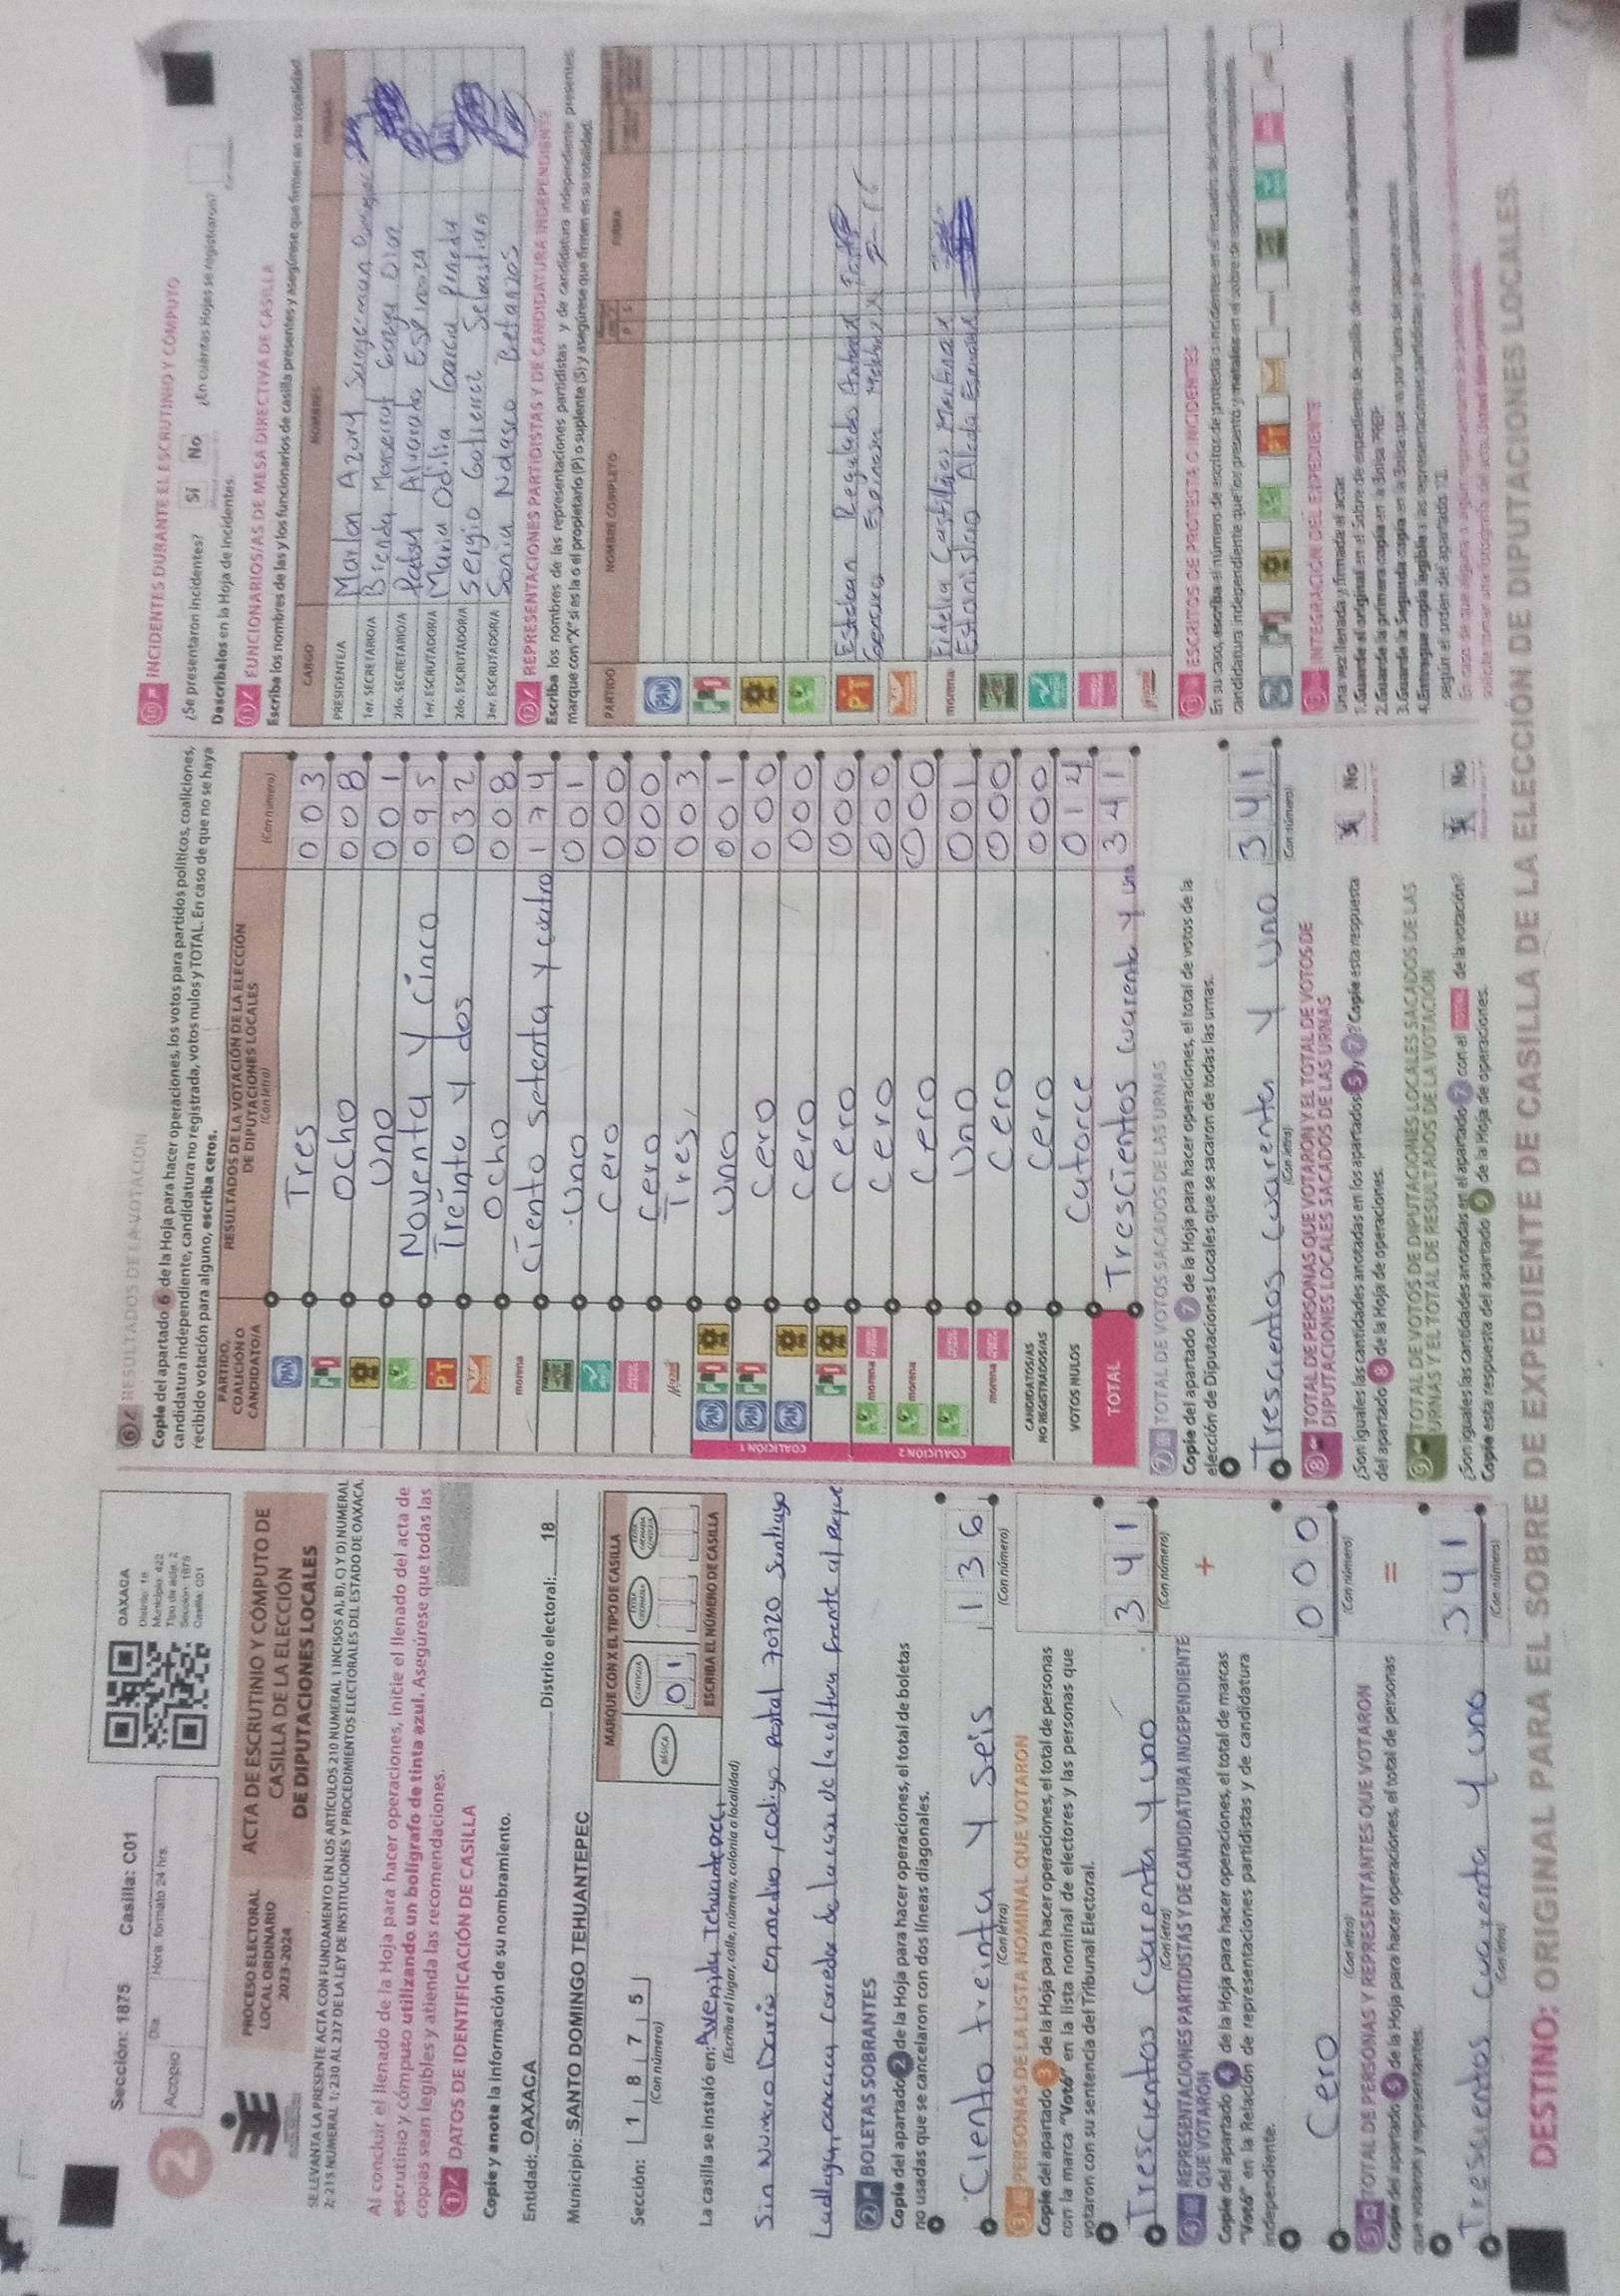 Sección: 1875 Casilla: C01
2
Acopio
Día
Hora formato 24 hrs.
OAXACA
Distrito: 18
Municipio: 422
Tipo de acta: 2
Sección: 1875
Casilla: C01
PROCESO ELECTORAL
LOCAL ORDINARIO
2023-2024
ACTA DE ESCRUTINIO Y CÓMPUTO DE
CASILLA DE LA ELECCIÓN
DE DIPUTACIONES LOCALES
SE LEVANTA LA PRESENTE ACTA CON FUNDAMENTO EN LOS ARTÍCULOS 210 NUMERAL 1 INCISOS A), B), C) Y D) NUMERAL
2; 215 NUMERAL 1; 230 AL 237 DE LA LEY DE INSTITUCIONES Y PROCEDIMIENTOS ELECTORALES DEL ESTADO DE OAXACA.
Al concluir el llenado de la Hoja para hacer operaciones, inicie el llenado del acta de
escrutinio y cómputo utilizando un bolígrafo de tinta azul. Asegúrese que todas las
copias sean legibles y atienda las recomendaciones.
1 DATOS DE IDENTIFICACIÓN DE CASILLA
Copie y anote la información de su nombramiento.
Entidad: OAXACA Distrito electoral: 18
Municipio: SANTO DOMINGO TEHUANTEPEC
Sección: 1 8 7 5
(Con número)
MARQUE CON X EL TIPO DE CASILLA
BÁSICA
CONTIGUA
0 1
ESCRIBA EL NÚMERO DE CASILLA
La casilla se instaló en: Avenida
(Escriba el lugar, calle, número, colonia o localidad)
Sin Numero Barrio en medio, codigo postal 70720 Santiago
de la casa de la cultura frente al parque
2 BOLETAS SOBRANTES
Copie del apartado 2 de la Hoja para hacer operaciones, el total de boletas
no usadas que se cancelaron con dos líneas diagonales.
Ciento treinta y seis 136
(Con letra) (Con número)
3 PERSONAS DE LA LISTA NOMINAL QUE VOTARON
Copie del apartado 3 de la Hoja para hacer operaciones, el total de personas
con la marca "Votó" en la lista nominal de electores y las personas que
votaron con su sentencia del Tribunal Electoral.
Trescientos cuarenta y uno 341
(Con letra) (Con número)
4 REPRESENTACIONES PARTIDISTAS Y DE CANDIDATURA INDEPENDIENTE
QUE VOTARON
+
Copie del apartado 4 de la Hoja para hacer operaciones, el total de marcas
"Votó" en la Relación de representaciones partidistas y de candidatura
independiente.
Cero 000
(Con letra) (Con número)
5 TOTAL DE PERSONAS Y REPRESENTANTES QUE VOTARON
=
Copie del apartado 5 de la Hoja para hacer operaciones, el total de personas
que votaron y representantes.
Trescientos cuarenta y uno 341
(Con letra) (Con número)
6 RESULTADOS DE LA VOTACIÓN
Copie del apartado 6 de la Hoja para hacer operaciones, los votos para partidos políticos, coaliciones,
candidatura independiente, candidatura no registrada, votos nulos y TOTAL. En caso de que no se haya
recibido votación para alguno, escriba ceros.
PARTIDO, COALICIÓN O CANDIDATO/A
RESULTADOS DE LA VOTACIÓN DE LA ELECCIÓN
DE DIPUTACIONES LOCALES
(Con letra) (Con número)
PAN Tres 003
PRI Ocho 008
Uno 001
Noventa y cinco 095
PT Treinta y dos 032
Ocho 008
morena Ciento setenta y cuatro 174
Uno 001
Cero 000
Cero 000
Tres 003
COALICIÓN 1
PAN PRI Uno 001
PAN PRI Cero 000
PAN Cero 000
PRI Cero 000
COALICIÓN 2
morena Cero 000
morena Cero 000
Uno 001
morena Cero 000
CANDIDATOS/AS
NO REGISTRADOS/AS Cero 000
VOTOS NULOS Catorce 014
TOTAL Trescientos cuarenta y uno 341
7 TOTAL DE VOTOS SACADOS DE LAS URNAS
Copie del apartado 7 de la Hoja para hacer operaciones, el total de votos de la
elección de Diputaciones Locales que se sacaron de todas las urnas.
Trescientos cuarenta y uno 341
(Con letra) (Con número)
8 TOTAL DE PERSONAS QUE VOTARON Y EL TOTAL DE VOTOS DE
DIPUTACIONES LOCALES SACADOS DE LAS URNAS
¿Son iguales las cantidades anotadas en los apartados 5 y 7? Copie esta respuesta
del apartado 8 de la Hoja de operaciones.
Sí No
9 TOTAL DE VOTOS DE DIPUTACIONES LOCALES SACADOS DE LAS
URNAS Y EL TOTAL DE RESULTADOS DE LA VOTACIÓN
¿Son iguales las cantidades anotadas en el apartado 7 con el TOTAL de la votación?
Copie esta respuesta del apartado 9 de la Hoja de operaciones.
Sí No
10 INCIDENTES DURANTE EL ESCRUTINIO Y CÓMPUTO
¿Se presentaron incidentes? Sí No ¿En cuántas Hojas se registraron?
Descríbalos en la Hoja de Incidentes.
11 FUNCIONARIOS/AS DE MESA DIRECTIVA DE CASILLA
Escriba los nombres de las y los funcionarios de casilla presentes y asegúrese que firmen en su totalidad.
CARGO NOMBRES FIRMAS
PRESIDENTE/A Marlon Azury
1er. SECRETARIO/A Brenda Monserrat
2do. SECRETARIO/A Alvarado Espinoza
1er. ESCRUTADOR/A Maria Odilia Garcia Pineda
2do. ESCRUTADOR/A Sergio Gutierrez Sebastian
3er. ESCRUTADOR/A Sonia Betanzos
12 REPRESENTACIONES PARTIDISTAS Y DE CANDIDATURA INDEPENDIENTE
Escriba los nombres de las representaciones partidistas y de candidatura independiente presentes,
marque con "X" si es la o el propietario (P) o suplente (S) y asegúrese que firmen en su totalidad.
PARTIDO NOMBRE COMPLETO P S FIRMA
PAN
PRI
PT Esteban Regalado
Espinoza
morena Fidelia Castillejos Martinez
Estanislao
13 ESCRITOS DE PROTESTA O INCIDENTES
En su caso, escriba el número de escritos de protesta o incidentes en el recuadro del partido político o
candidatura independiente que los presentó y métalos en el sobre de expediente
14 INTEGRACIÓN DEL EXPEDIENTE
Una vez llenada y firmada el acta:
1. Guarde el original en el Sobre de expediente de casilla de la elección de Diputaciones Locales
2. Guarda la primera copia en la Bolsa PREP.
3. Guarda la Segunda copia en la Bolsa que va por fuera del paquete electoral.
4. Entregue copia legible a las representaciones partidistas y de candidatura independiente
según el orden del apartado 12.
DESTINO: ORIGINAL PARA EL SOBRE DE EXPEDIENTE DE CASILLA DE LA ELECCIÓN DE DIPUTACIONES LOCALES.